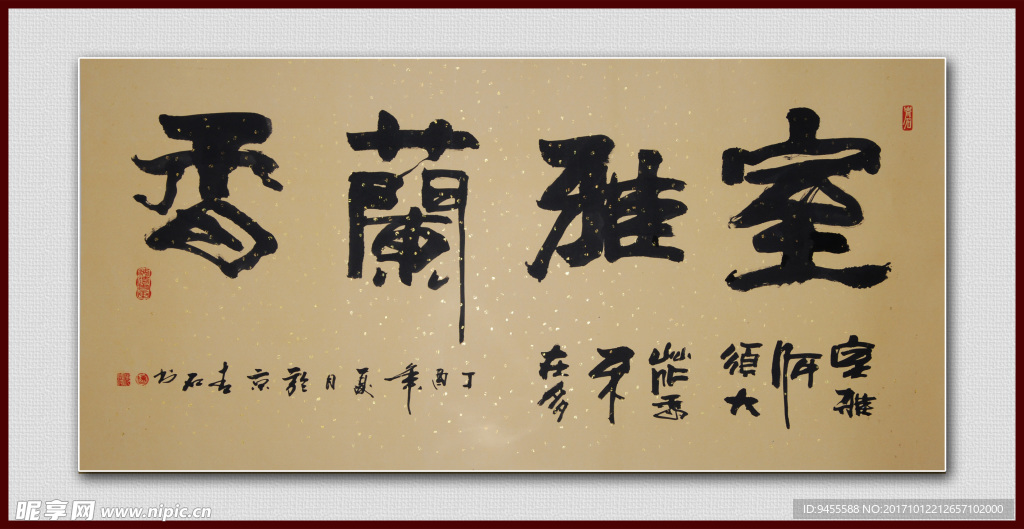 室雅蘭香
室雅
何須大
花香
不在多
丁酉年夏月於京青石书
昵享网 www.nipic.cn
ID:9455588 NO:20171012212657102000